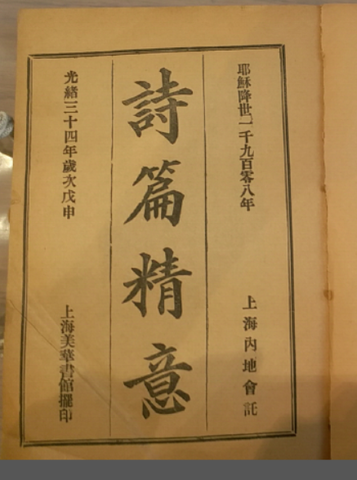 耶穌降世一千九百零八年
上海內地會託
詩篇精意
光緒三十四年歲次戊申
上海美華書館擺印